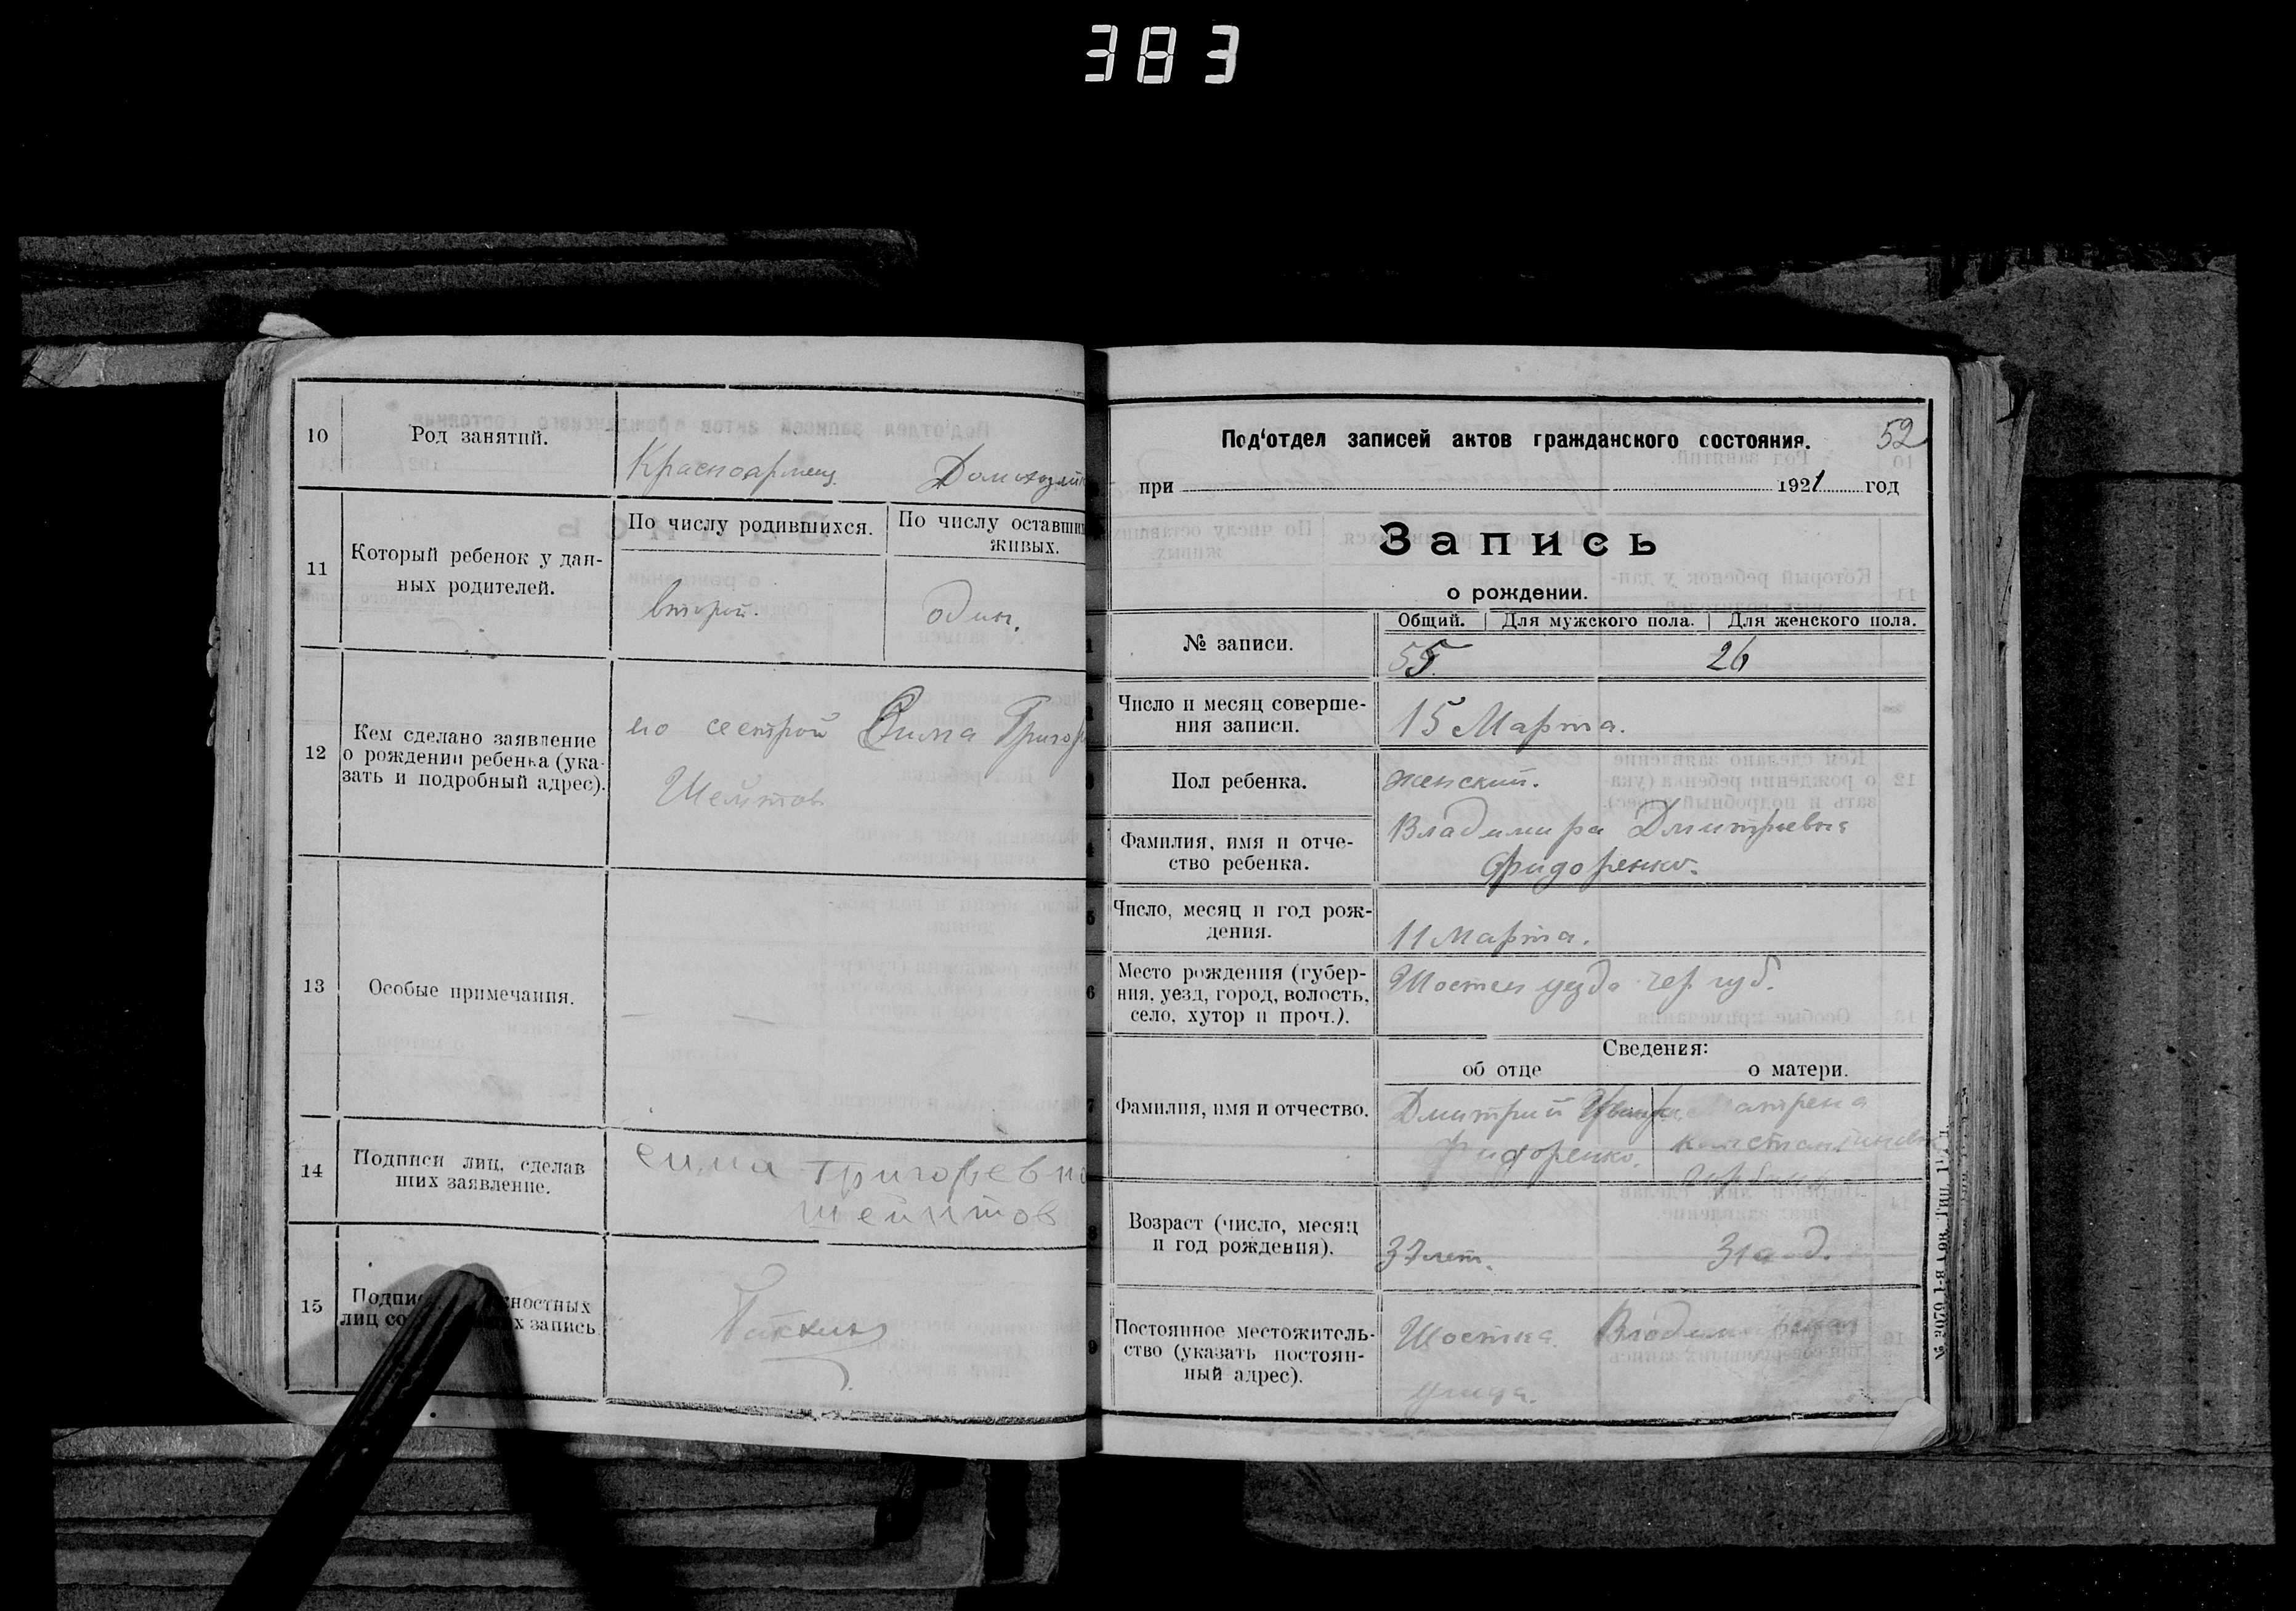 383
10 Род занятий. Красноармец. Домохозяй
11 Который ребенок у дан-
ных родителей.
По числу родившихся. По числу оставших
живых.
второй. один.
12 Кем сделано заявление
о рождении ребенка (ука-
зать и подробный адрес).
сестрой Сима Григор
Шейтов
13 Особые примечания.
14 Подписи лиц, сделав
ших заявление.
сима григорьевна
шейнтов
15 Подпи ностных
лиц со х запись
Под'отдел записей актов гражданского состояния. 52
при 1921 год
Запись
о рождении.
1 № записи.
Общий. Для мужского пола. Для женского пола.
55 26
Число и месяц соверше-
ния записи.
15 Марта.
Пол ребенка. женский.
4 Фамилия, имя и отче-
ство ребенка.
Владимира Дмитриевна
Фидоренко.
5 Число, месяц и год рож-
дения.
11 Марта.
6 Место рождения (губер-
ния, уезд, город, волость,
село, хутор и проч.).
уезда чер губ.
Сведения:
об отце о матери.
7 Фамилия, имя и отчество.
Дмитрий Матрена
Фидоренко. Константиновна
8 Возраст (число, месяц
и год рождения).
37 лет. 31 год.
9 Постоянное местожитель-
ство (указать постоян-
ный адрес).
Шостка. Владимирская
улица.